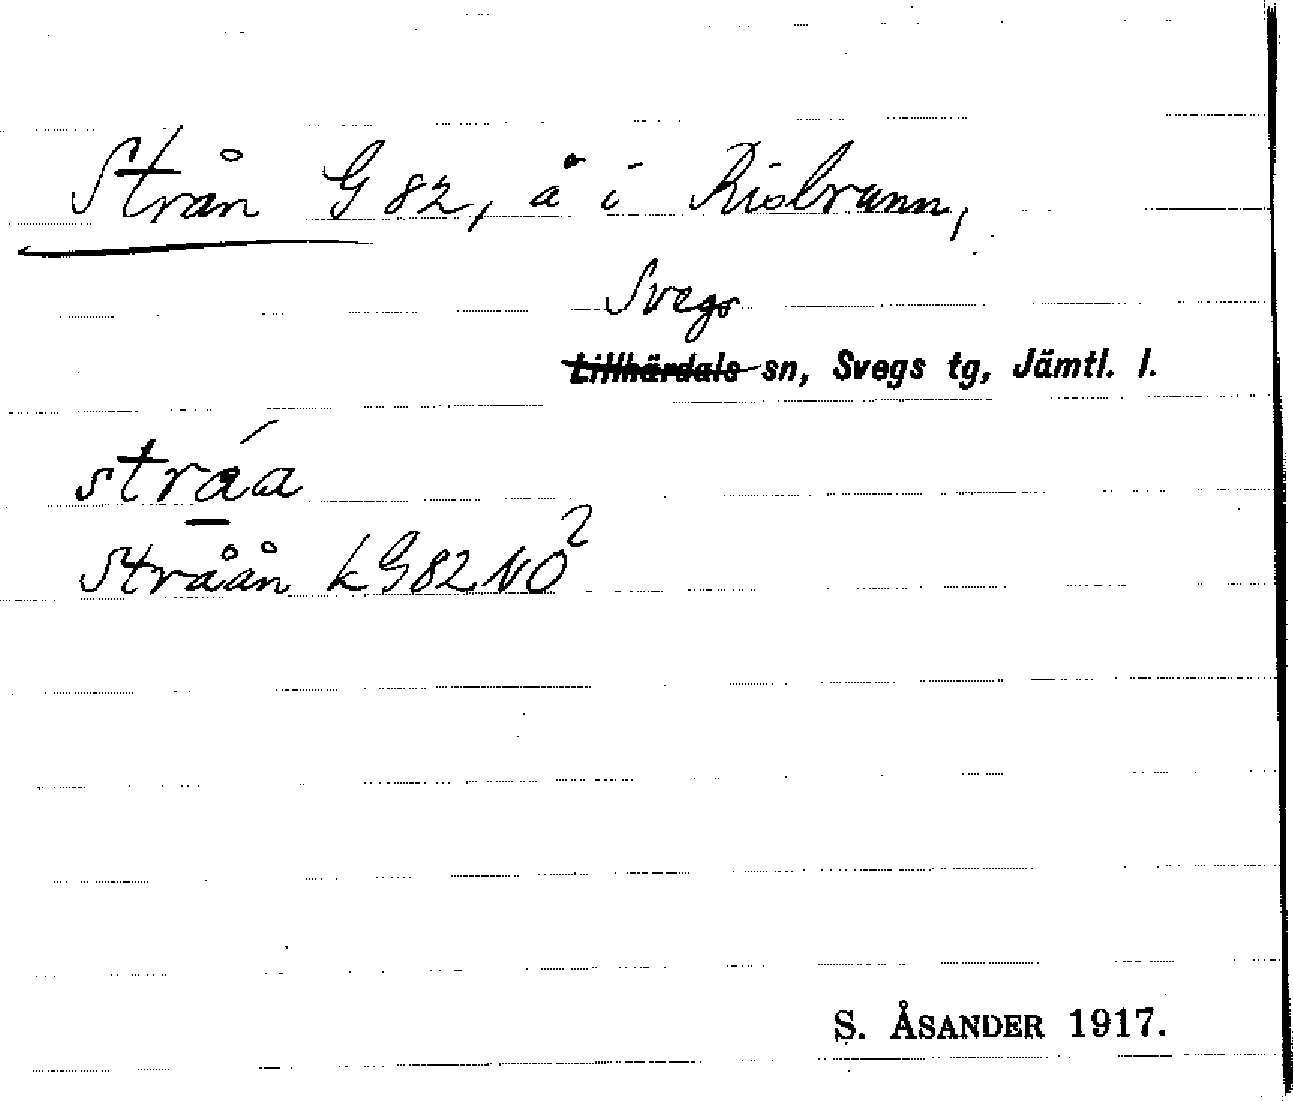 Strån G 82, å i Risbrunn,
Svegs
~~Lillhärdals~~ sn, Svegs tg, Jämtl. l.
stráa
Stråån k G 82 NO²
S. ÅSANDER 1917.